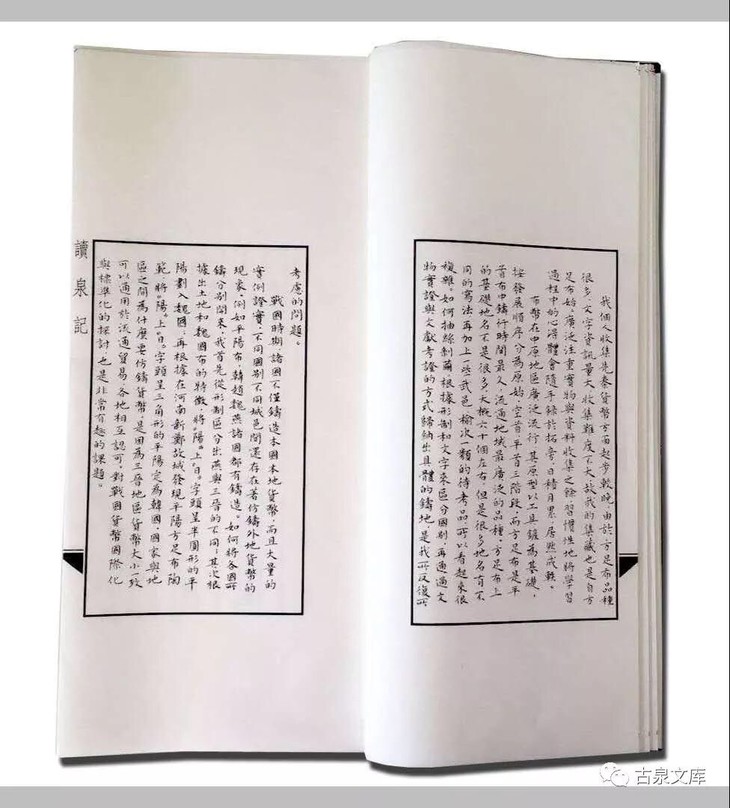 我個人收集先秦貨幣方面起步較晚由於方足布品種
很多，文字資訊量大收集難度不大故我的集藏也是自方
足布始，廣泛注重實物與資料收集之餘習慣性地將學習
過程中的心得體會隨手錄於拓旁日積月累，居然成帙。
布幣在中原地區廣泛流行其原型以工具鏟為基礎，
按發展順序，分為原始，空首平首三階段，而方足布是平
首布中鑄行時間最久，流通地域最廣泛的品種，方足布上
的基礎地名不是很多大概六十個左右，但是很多地名有不
同的寫法再加上一些武邑榆次一類的待考品所以看起來很
複雜。如何抽絲剝繭根據形制和文字來區分國別，再通過文
物實證與文獻考證的方式歸納出具體的鑄地是我所反復所
考慮的問題。
戰國時期諸國不僅鑄造本國本地貨幣，而且大量的
實例證實，不同國別不同城邑間還存在著仿鑄外地貨幣的
現象。例如平陽布，韓趙魏燕諸國都有鑄造。如何將各國所
鑄分別開來，我首先從形制區分出燕與三晉的不同；其次根
據出土地和魏國布的特徵，將陽。上。日。字頭呈半圓形的平
陽劃入魏國；再根據在河南新鄭故城發現平陽方足布陶
範，將。陽。上。日。字頭呈三角形的平陽定為韓國，國家與地
區之間為什麼要仿鑄貨幣。是因為三晉地區貨幣大小一致
可以通用於流通貿易各地相互認可。對戰國貨幣國際化
與標準化的探討，也是非常有趣的課題。
讀泉記
古泉文库